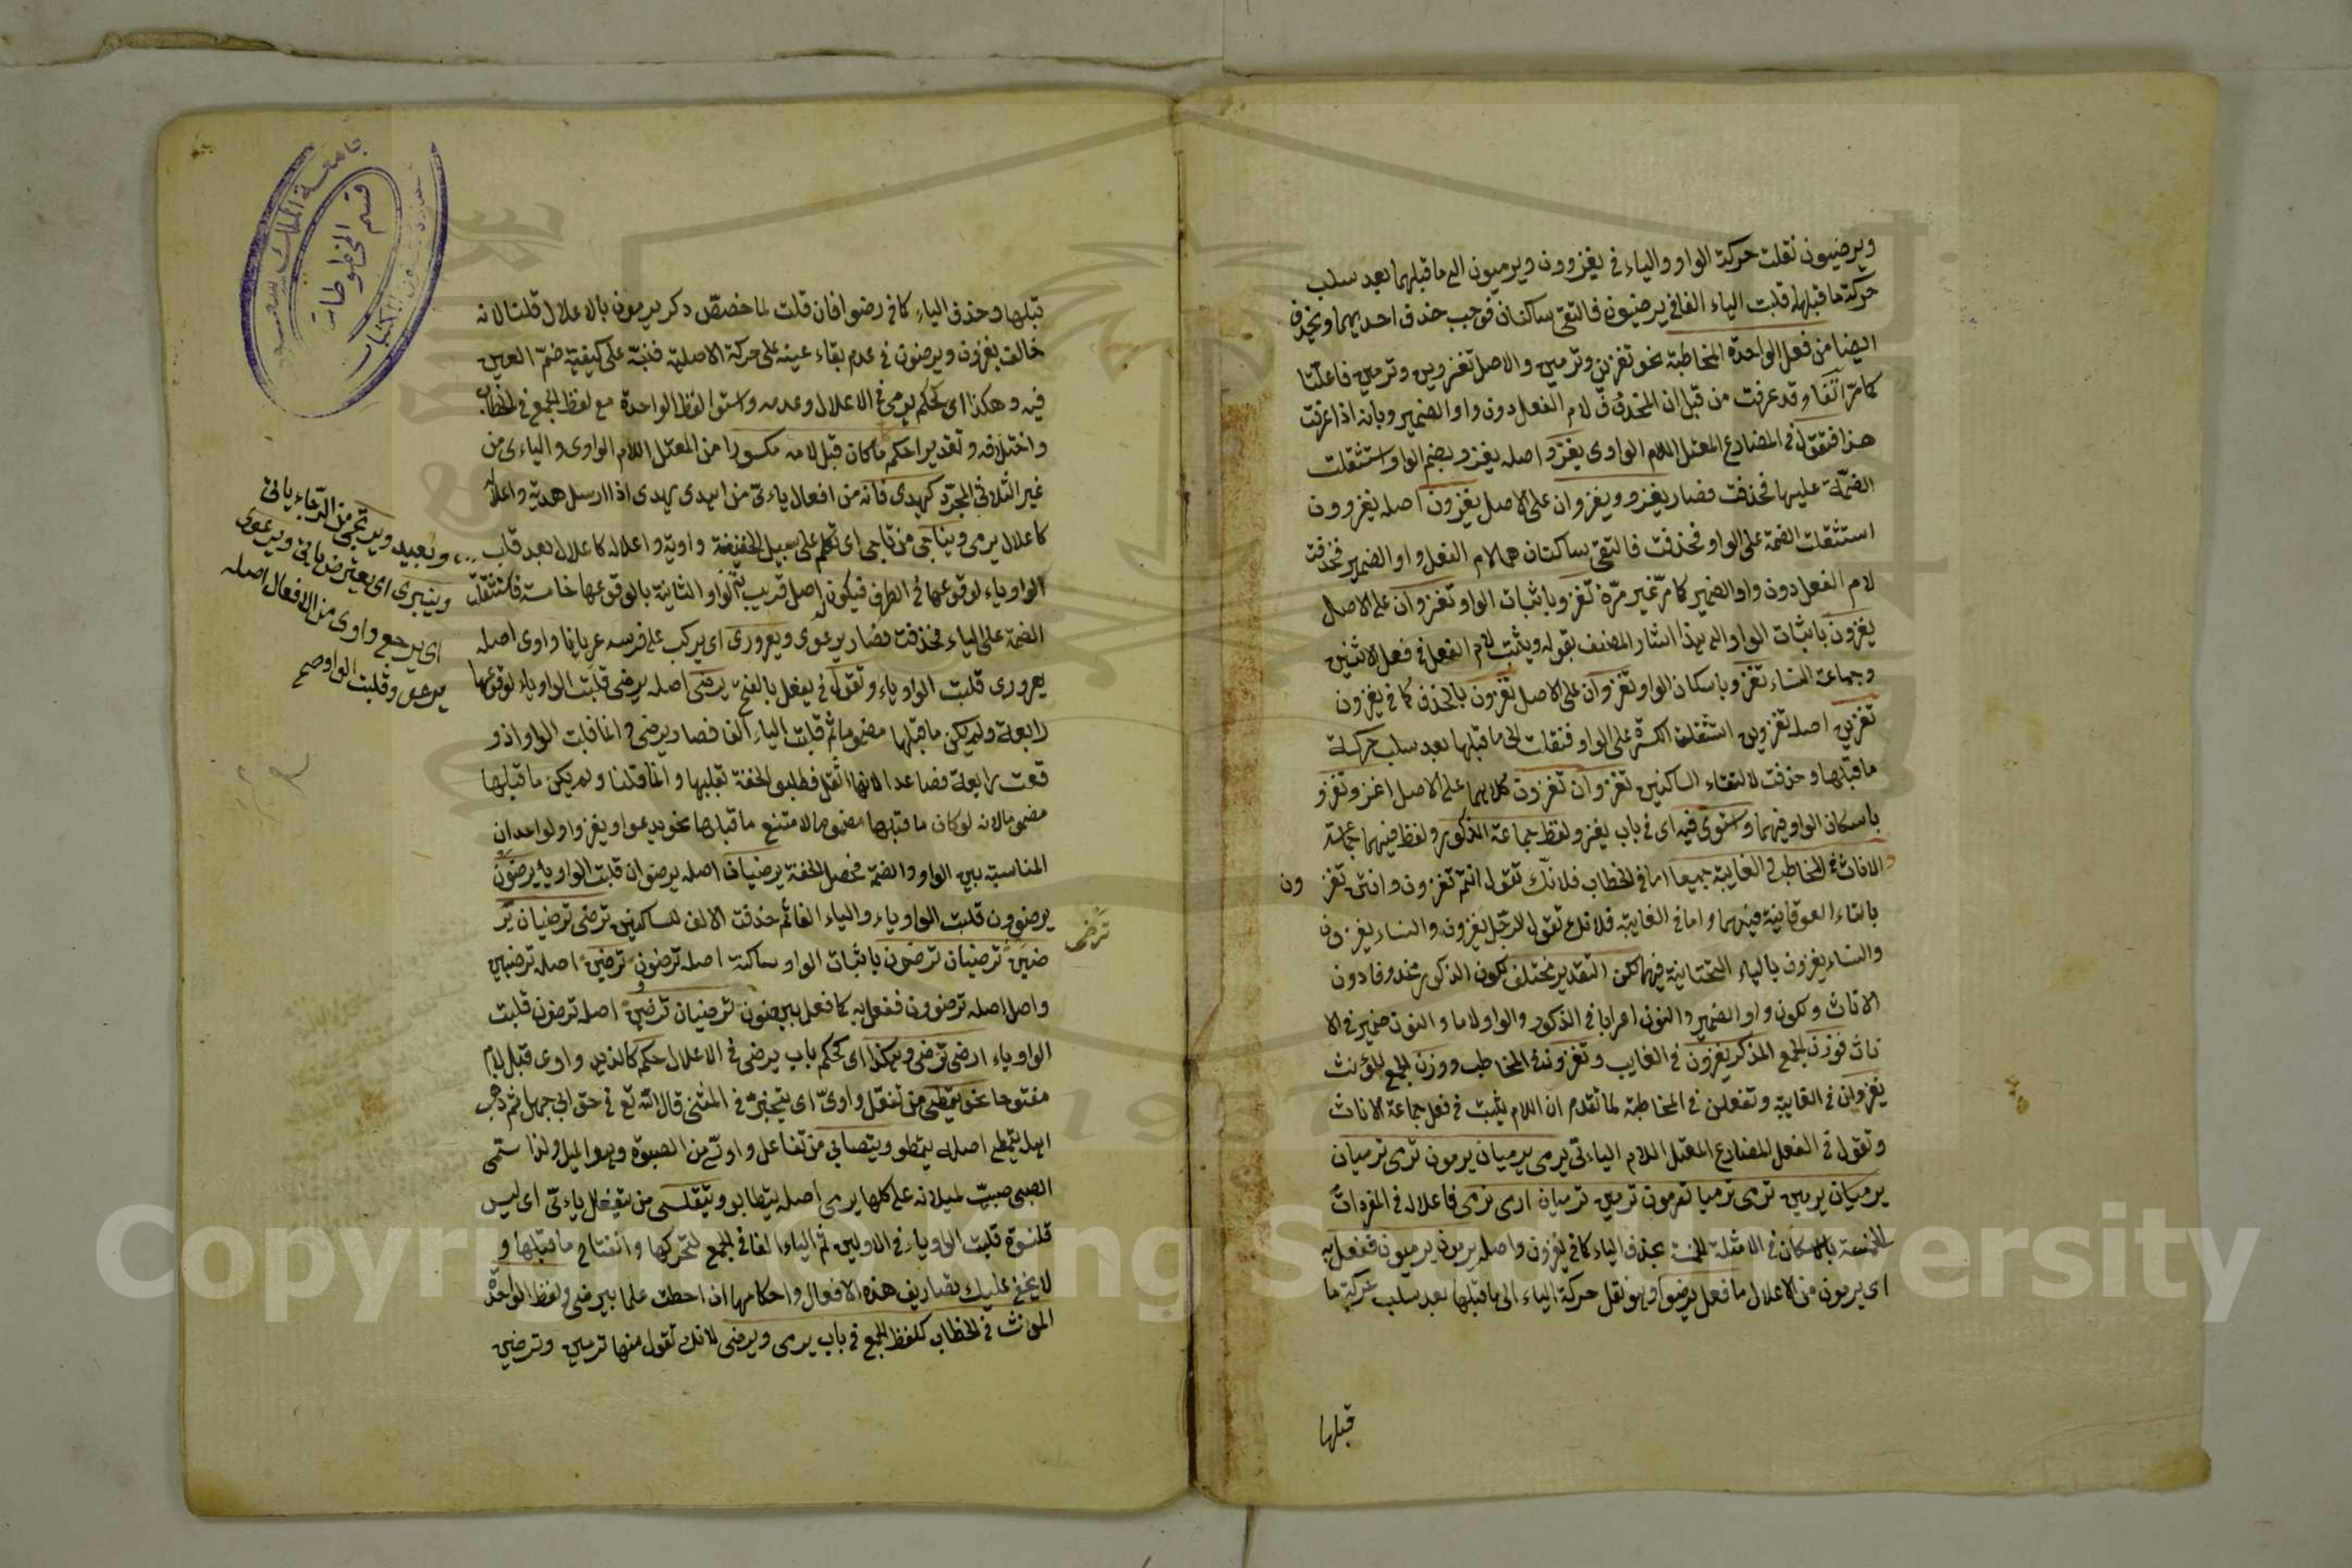 ويرضيون نقلت حركة الواو والياء في يغزوون ويرميون الى ما قبلهما بعد سلب
حركة ما قبلها قلبت الياء الفا في يرضيون فالتقى ساكنان فوجب حذف احديهما ويحذف
ايضا من فعل الواحدة المخاطبة نحو تغزين وترمين والاصل تغزوين وترميين فاعلتا
كما مر آنفا وقد عرفت من قبل ان المحذوف لام الفعل دون واو الضمير وبانه اذا عرفت
هذا فتقول في المضارع المعتل اللام الواوي يغزو اصله يغزو بضم الواو استثقلت
الضمة عليها فحذفت فصار يغزو ويغزوان على الاصل يغزون اصله يغزوون
استثقلت الضمة على الواو فحذفت فالتقى ساكنان هما لام الفعل واو الضمير فحذفت
لام الفعل دون واو الضمير كما مر غير مرة تغزو باثبات الواو تغزوان على الاصل
يغزون باثبات الواو الى هذا اشار المصنف بقوله ويثبت لام الفعل في فعل الاثنين
وجماعة النساء تغزو باسكان الواو تغزوان على الاصل تغزون بالحذف كما في يغزون
تغزين اصله تغزوين استثقلت الكسرة على الواو فنقلت الى ما قبلها بعد سلب حركة
ما قبلها وحذفت لالتقاء الساكنين تغزوان تغزون كلاهما على الاصل اغزو نغزو
باسكان الواو فيهما واستوى فيه اي في باب يغزو لفظ جماعة الذكور ولفظ فيهما جماعة
والاناث في المخاطب والغايبة جميعا اما في الخطاب فلانك تقول انتم تغزون وانتن تغز ون
بالتاء الفوقانية فيهما واما في الغايبة فلانك تقول الرجال يغزون والنساء يغزون
والنساء يغزون بالياء التحتانية فيهما لكن التقدير مختلف لكون الذكور محذوفا دون
الاناث ولكون واو الضمير والنون اعرابا في الذكور والواو لاما والنون ضمير في الا
ناث فوزن الجمع المذكر يغزون في الغايب وتغزون في المخاطب ووزن الجمع المؤنث
يغزون في الغايبة وتفعلن في المخاطبة لما تقدم ان اللام يثبت في فعل جماعة الاناث
وتقول في الفعل المضارع المعتل اللام اليائي يرمى يرميان يرمون ترمى ترميان
يرميان يرمين ترمى ترميان ترمون ترمين ترميان ارمى نرمى فاعلاله في المفردات
الخمسة بالاسكان في الامثلة الخمسة بحذف الياء كما في يغزون واصل يرمون يرميون ففعل به
اي يرمون من الاعلال ما فعل برضوا وهو نقل حركة الياء الى ما قبلها بعد سلب حركة ما
قبلها
قبلها وحذف الياء كما في رضوا فان قلت لما خصص ذكر يرمون بالاعلال قلت لانه
خالف يغزون ويرضون في عدم بقاء عينه على حركة الاصلية فنبه على كيفية ضم العين
فيه وهكذا اي كحكم يرمى في الاعلال وعدمه واستوا لفظ الواحدة مع لفظ الجمع في الخطاب
واختلافه وتقديرا حكم ما كان قبل لامه مكسورا من المعتل اللام الواوى والياءى من
غير الثلاثي المجرد كيهدى فانه من افعال يائي من اهدى يهدى اذا ارسل هدية واعلاله
كاعلال يرمى ويناجى من ناجى اي تكلم على سبيل الخفية واوية واعلاله كاعلال بعد قلب
الواو ياء لوقوعها في الطرف فيكون اصل قريب ثم الواو الثانية بالوقوعها خامسة فاستثقلت
الضمة على الياء فحذفت فصار يرعوى ويعرورى اي يركب على فرسه عريانا واوى اصله
يعرورى قلبت الواو ياء وتقول في يفعل بالفتح يرضى اصله يرضى قلبت الواو ياء لوقوعها
رابعة ولم يكن ما قبلها مضموما ثم قلبت الياء الفا فصار يرضى وانما قلبت الواو اذ و
قعت رابعة فصاعدا لانها اثقل فطلبوا الخفة بقلبها وانما قلنا ولم يكن ما قبلها
مضموما لانه لو كان ما قبلها مضموما لامتنع ما قبلها نحو يدعوا ويغزوا ولو احد ان
المناسبة بين الواو والضمة فحصل الخفة يرضيان اصله يرضوان قلبت الواو ياء يرضون
يرضوون قلبت الواو ياء والياء الفا ثم حذفت الالف للساكنين ترضى ترضيان ير
ترضى
ضين ترضيان ترضون باثبات الواو ساكنة اصله ترضون ترضين اصله ترضيين
واصل اصله ترضوون ففعل به كما فعل بيرضون ترضيان ترضين اصله ترضون قلبت
الواو ياء ارضى نرضى وهكذا اي كحكم باب يرضى في الاعلال حكم كالذين واوى قبل لام
مفتوحا نحو يتمطى من تفعل واوى اي يتبختر في المشى قال الله تع في حق ابي جهل ثم ذهب
اهله يتمطى اصله يتمطو ويتصابى من تفاعل واوى من الصبوة وهو الميل ولذا سمى
الصبى صبيا لميلانه على كلها يرمى اصله يتصابو ويتقلسى من يتفعلل يائي اي لبس
قلنسوة قلبت الواو ياء في الاولين ثم الياء الفا في الجمع لتحركها وانفتاح ما قبلها و
لا يخفى عليك تصاريف هذه الافعال واحكامها ان احطت علما بيرضى ولفظ الواحدة
المونث في الخطاب كلفظ الجمع في باب يرمى ويرضى لانك تقول منها ترمين وترضين
ويرتجى من الرجاء يائي
وينبرى اي يعترض يائي ويرعوى
اي يرجع واوى من الافعال اصله
يرعو وقلبت الواو صح
جامعة الملك سعود
قسم المخطوطات
Copyright © King Saud University
1957